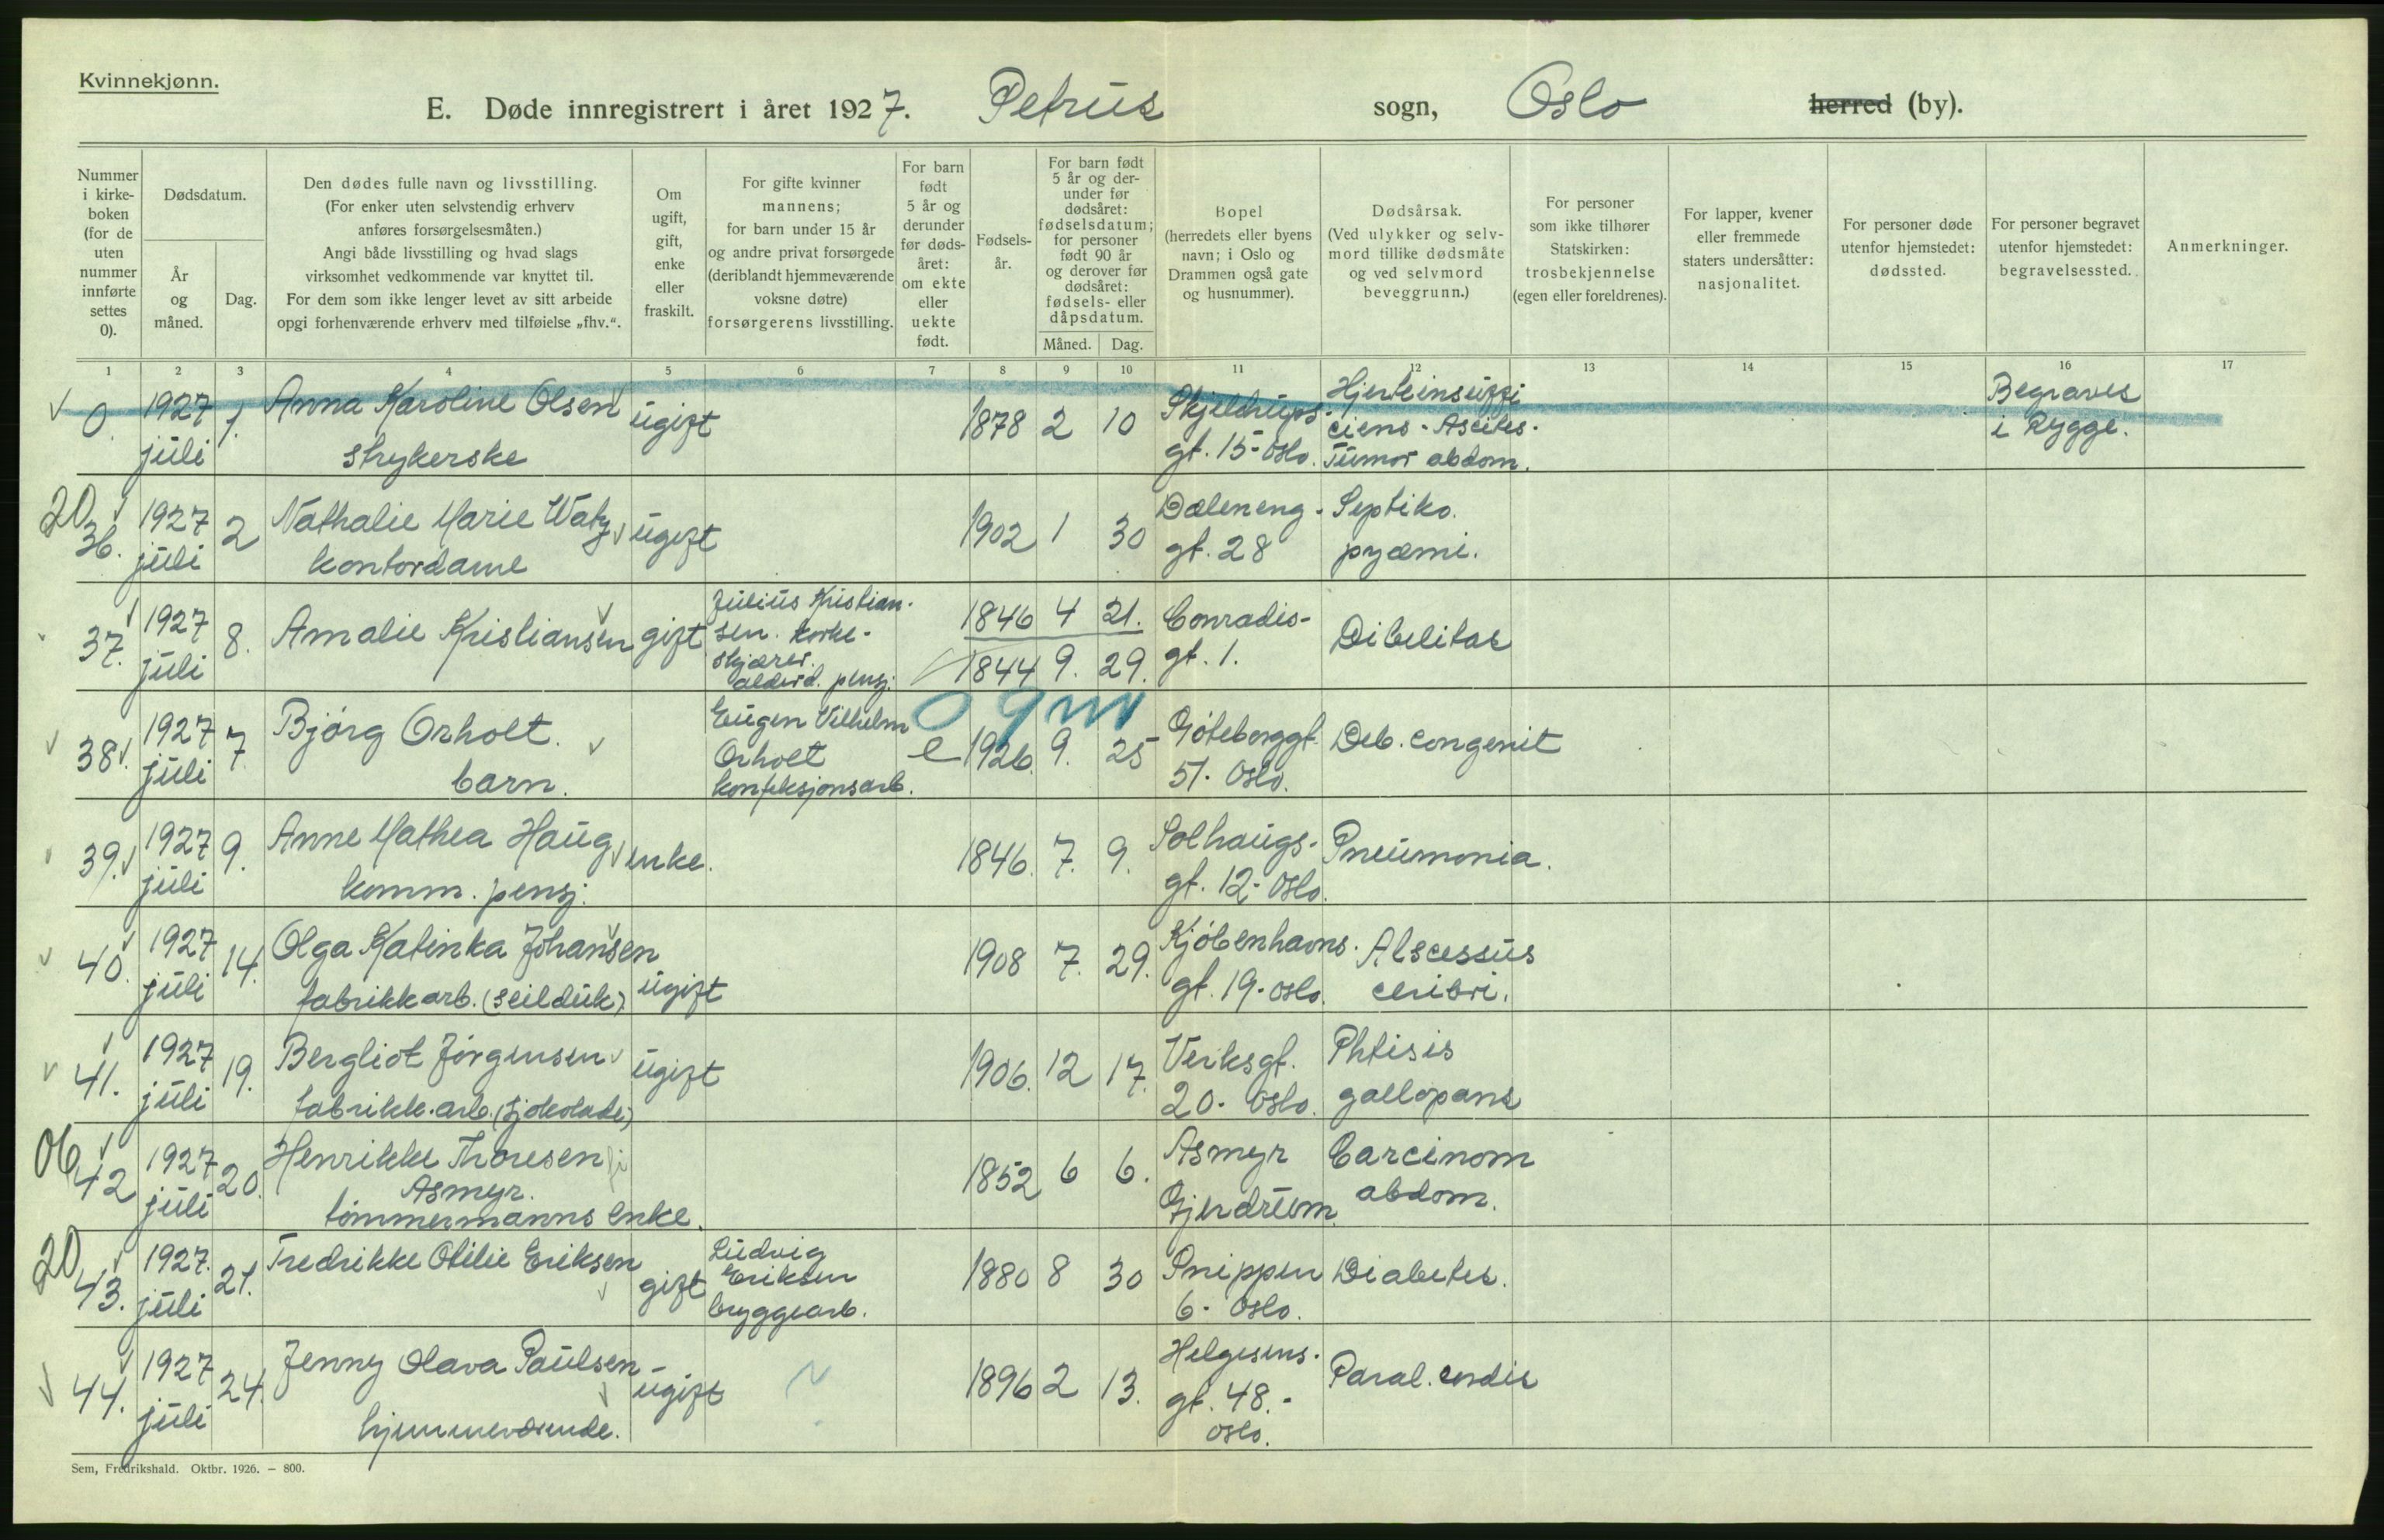 Kvinnekjønn.
E. Døde innregistrert i året 1927. Petrus sogn, Oslo herred (by).
Nummer i kirke- boken (for de uten nummer innførte settes 0).
Dødsdatum.
År og måned.
Dag.
Den dødes fulle navn og livsstilling.
(For enker uten selvstendig erhverv
anføres forsørgelsesmåten.)
Angi både livsstilling og hvad slags
virksomhet vedkommende var knyttet til.
For dem som ikke lenger levet av sitt arbeide
opgi forhenværende erhverv med tilføielse „fhv.“.
Om ugift, gift, enke eller fraskilt.
For gifte kvinner
mannens;
for barn under 15 år
og andre privat forsørgede
(deriblandt hjemmeværende
voksne døtre)
forsørgerens livsstilling.
For barn født 5 år og derunder før døds- året: om ekte eller uekte født.
Fødsels- år.
For barn født
5 år og der-
under før
dødsåret:
fødselsdatum;
for personer
født 90 år
og derover før
dødsåret:
fødsels- eller
dåpsdatum.
Måned. Dag.
Bopel
(herredets eller byens
navn; i Oslo og
Drammen også gate
og husnummer).
Dødsårsak.
(Ved ulykker og selv-
mord tillike dødsmåte
og ved selvmord
beveggrunn.)
For personer
som ikke tilhører
Statskirken:
trosbekjennelse
(egen eller foreldrenes).
For lapper, kvener
eller fremmede
staters undersåtter:
nasjonalitet.
For personer døde
utenfor hjemstedet:
dødssted.
For personer begravet
utenfor hjemstedet:
begravelsessted.
Anmerkninger.
1 2 3 4 5 6 7 8 9 10 11 12 13 14 15 16 17
0. 1927 juli 1. Anna Karoline Olsen strykerske ugift 1878 2 10 Skjeldrups- gt. 15- Oslo. Hjerteinsuffi- ciens - Ascites - Tumor abdom. Begraves i Rygge.
20
36. 1927 juli 2 Nathalie Marie Watz kontordame ugift 1902 1 30 Dæleneng- gt. 28 Septiko. pyæmi.
37. 1927 juli 8. Amalie Kristiansen gift Julius Kristian- sen. korke- skjærer. alderd. pensj. 1846 4 21. 1844 9. 29. Conradis- gt. 1. Dibelitas
0 9 m
38. 1927 juli 7. Bjørg Orholt. barn. Eugen Vilhelm Orholt konfeksjonsarb. e 1926. 9. 25 Gøteborggt. 51. Oslo. Deb. congenit
39. 1927 juli 9. Anne Mathea Haug komm. pensj. enke. 1846. 7. 9. Solhaugs- gt. 12- Oslo. Pneumonia.
40. 1927 juli 14. Olga Katinka Johansen fabrikkarb. (seilduk) ugift 1908 7. 29. Kjøbenhavns- gt. 19- Oslo. Abscessus cerebri.
41. 1927 juli 19. Bergliot Jørgensen fabrikk.arb. (sjokolade) ugift 1906. 12 17. Verksgt. 20- Oslo. Phtisis gallopans
06
42 1927 juli 20. Henrikke Thoresen Asmyr. tømmermanns enke. 1852 6 6. Asmyr Gjerdrum Carcinom abdom.
20
43. 1927. juli 21. Fredrikke Otilie Eriksen gift Ludvig Eriksen bryggearb. 1880 8 30 Snippen 6- Oslo. Diabetes.
44. 1927 juli 24. Jenny Olava Paulsen hjemmeværende. ugift 1896 2 13. Helgesens- gt. 48.- Oslo. Paral. cordis
Sem, Fredrikshald. Oktbr. 1926. — 800.